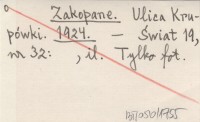 Zakopane. Ulica Kru-
pówki. 1924. — Świat 19,
nr 32: , il. Tylko fot.